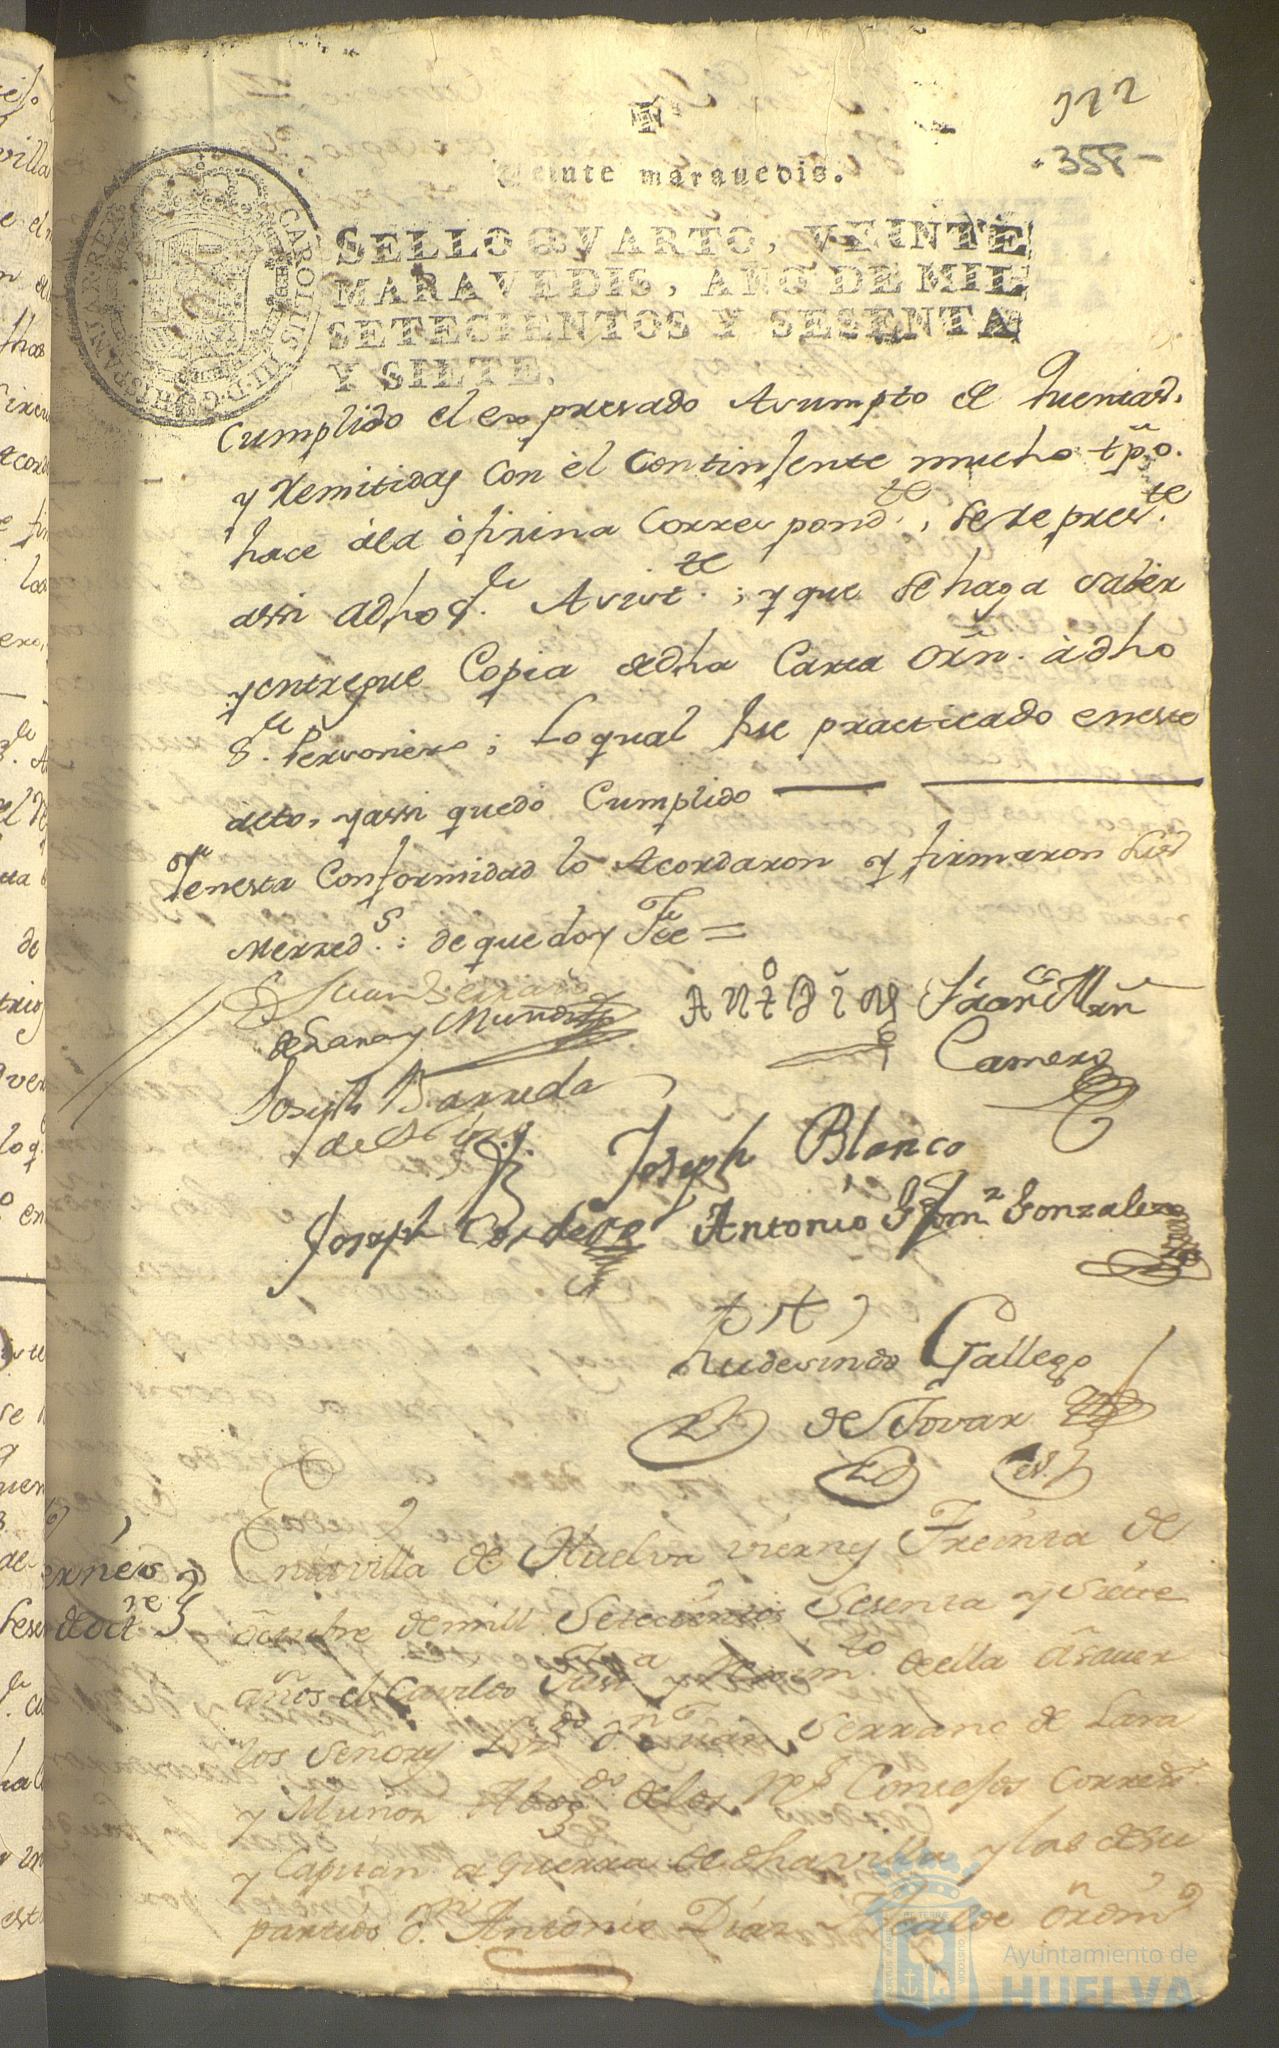 122
358-
Veinte marauedis.
SELLO QVARTO, VEINTE
MARAVEDIS, AÑO DE MIL
SETECIENTOS Y SESENTA
Y SIETE.
CAROLUS III D G HISPANIAR REX
Cumplido el expresado Asumpto de
y Remitidas con el Continjente mucho tpõ.
hace ála ofizina Correspondte., se represte.
assi adho Sr. Asistte.; y que se haga saber
y entregue Copia dedha Carta Orñ. àdho
Sr. Personero; Lo qual fue practicado eneste
acto, y assi quedó Cumplido
Yenesta Conformidad lo Acordaron y firmaron sus
Merzeds.: de que doy Fee =
Juan Serrano
de Lara y Muñoz
Antº Diaz
Franco Mrñ
Camero
Joseph Barreda
Joseph Blanco
Joseph Cordero
Antonio Gonzalez
Rudesindo Gallego
de Tovar
ernes
de octre
Enlavilla de Huelva viernes Treinta de
octubre demill Setecientos Sesenta y Siete
años el Cavildo Justa y Reximto. deella àsauer
los señores Lizdo dn Juan Serrano de Lara
y Muñoz Abogdo delos Rs Consejos Correxr.
y Capitan aguerra de dha villa y las desu
partido dn. Antonio Diaz Alcalde ordinº
Ayuntamiento de
HUELVA